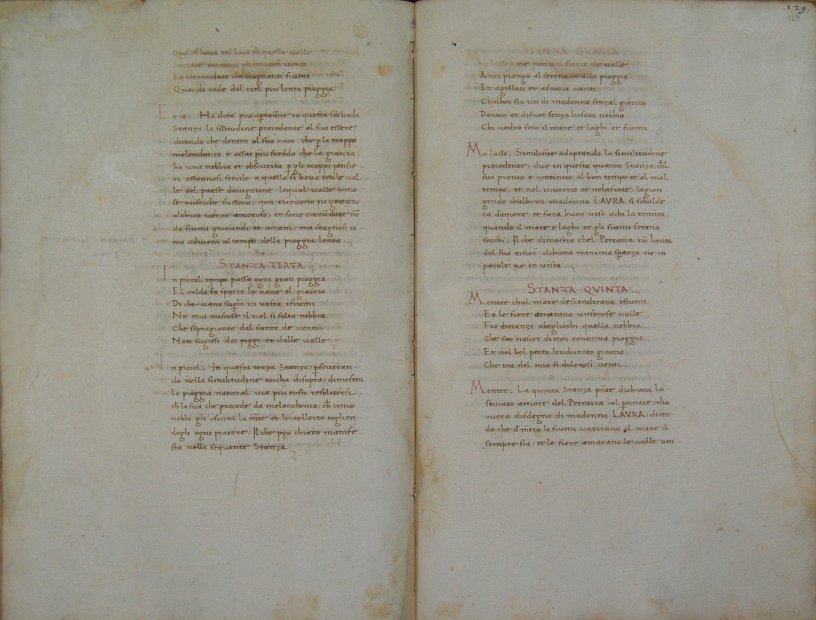 Qual si leva tal hora di queste valle
Serrate incontro gli amorosi venti
Et circundate da stagnanti fiumi
Quando cade dal ciel piu lenta pioggia
Et io. Ha data piu aptamẽte in questa secunda
Stanza la silitudine precedente al suo essere
dicendo che dentro al suo cuor: che p la troppo
melenchonia e assai piu freddo che la giaccia,
ha una nebbia et obscurita p gli troppi pensie
ri affannosi simile a quella si lieva tra le val
le del paese davignione: lequal valle como
se rustiche fussono: non ricevono ni gettano
alchun vento amoroso: et sono circũdate nõ
da fiumi giocundi et ameni, ma stagnosi co
mo adviene al tempo della pioggia lenta
STANZA TERTA
In picciol tempo passa ogni gran pioggia
El caldo fa sparir le neve el giaccio
Di che vano supbi in vista ifiumi
Ne mai nascose il ciel si folta nebbia
Che sopragionta dal furor de venti
Non fugissi dai poggi et dalle valle
In picciol. In questa terza Stanza, pseveran
do nella similitudine toccha disopra, dimostra
la pioggia natural
che procede da melanchonia, cħ como
nebbi gli oscura la mẽte et lintellecto toglien
dogli ogni piacere. Il che piu chiaro manife
sta nella sequente Stanza.
129
STANZA QUARTA
Ma lasso a me non val fiorir de valle
Anzi piango al sereno et alla pioggia
Et agellati et asuavi venti
Chalhor fia un di madonna senzal giaccio
Dentro et difuor senza lusata nebbia
Chi vedro seco il mare et laghi et fiumi.
Ma lasso. Similmẽte adaptando la similitudine
precedente, dice in questa quarta Stanza, cħl
suo pianto e continuo al bon tempo et al mal
tempo, et nel inverno et nel Sogion
gendo chalhora madonna LAVRA si schalde
ra damore et fara buon viso achi la rimira,
quando il mare e laghi et gli fiumi serano
secchi. Il che dimostra chel Petrarca nõ havea
del suo amor alchuna minima spanza ne in
parole ne in vista
STANZA QVINTA
Mentre chal mare descenderano ifiumi
Et le fiere amarano umbrose valle
Fia dinanzi abegliochi quella nebbia
Che fa nascer di mei continua pioggia
Et nel bel petto lindurato giaccio
Che tra del mio si dolorosi venti
Mentre. La quinta Stanza pñte dichiara lo
amore del Petrarca col odio
overo disdegno di madonna LAVRA, dicen
do che dmẽtro li fiumi correrano al mare cħ
sempre fia, et le fiere amarano le valle um